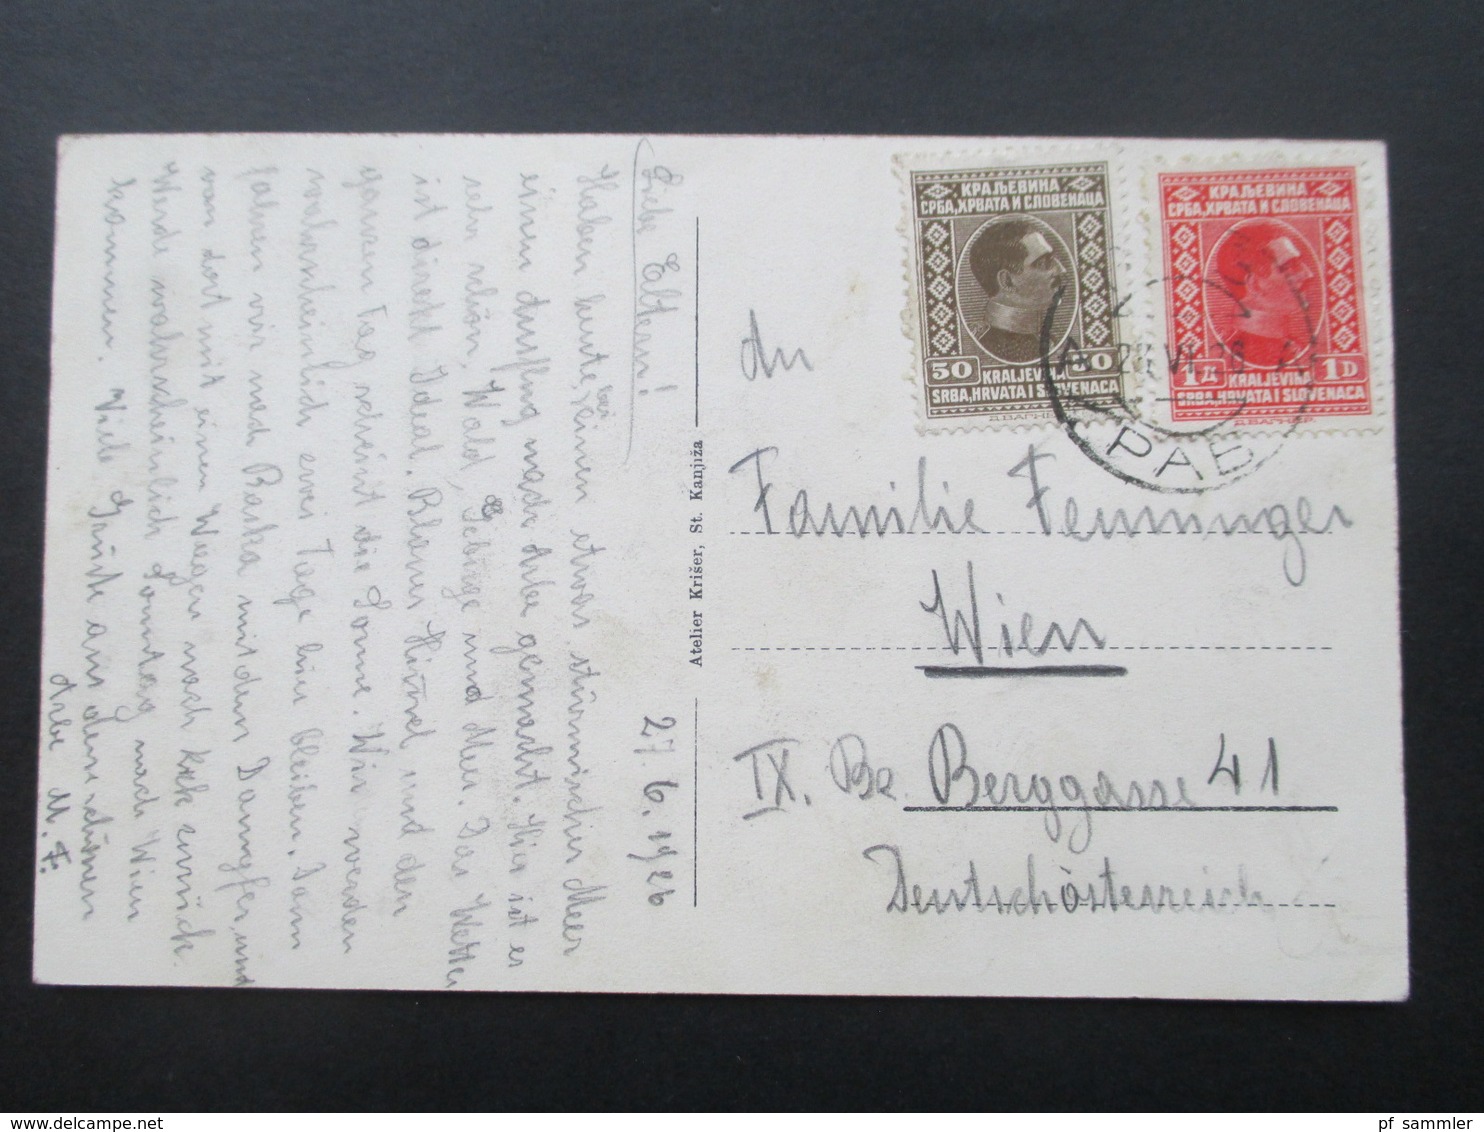 27.6.1926
Liebe Eltern!
Haben heute, bei einen etwas stürmischen Meer
einen Ausflug nach Arbe gemacht. Hier ist es
sehr schön, Wald, Gebirge und Meer. Das Wetter
ist direkt Ideal. Blauer Himmel und den
ganzen Tag scheint die Sonne. Wir werden
wahrscheinlich zwei Tage hier bleiben. Dann
fahren wir nach Baska mit dem Dampfer, und
von dort mit einen Wagen nach Krk zurück.
Werde wahrscheinlich Sonntag nach Wien
kommen. Viele Grüße aus dem schönen
Arbe M. F.
Atelier Krišer, St. Kanjiža
КРАЉЕВИНА
СРБА, ХРВАТА И СЛОВЕНАЦА
50 50
KRALJEVINA
SRBA, HRVATA I SLOVENACA
КРАЉЕВИНА
СРБА, ХРВАТА И СЛОВЕНАЦА
1Д 1D
KRALJEVINA
SRBA, HRVATA I SLOVENACA
РАБ
An
Familie Fenninger
Wien
IX. Be. Berggasse 41
Deutschösterreich
pf sammler